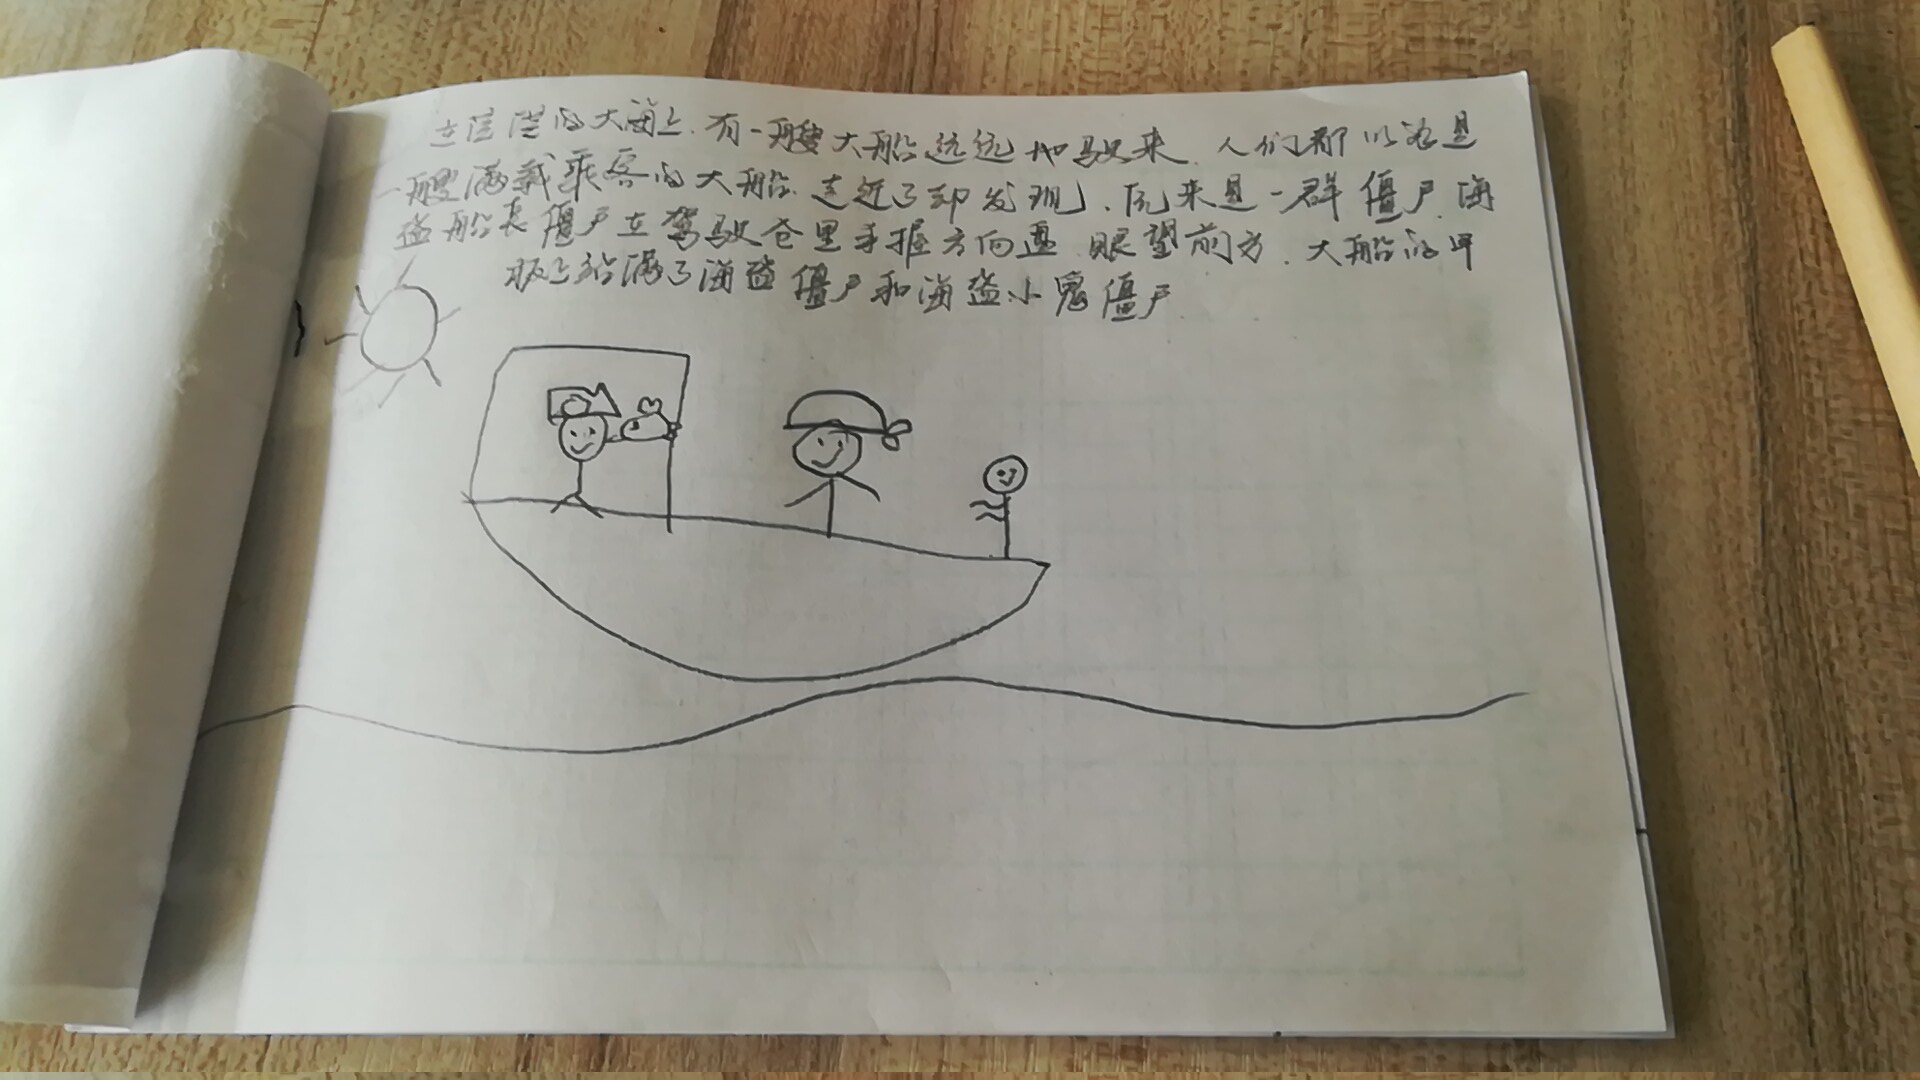 在茫茫的大海上.有一艘大船远远地驶来.人们都以为是
一艘满载乘客的大船.走近了却发现.原来是一群僵尸.海
盗船长僵尸在驾驶仓里手握方向盘.眼望前方.大船的甲
板上站满了海盗僵尸和海盗小鬼僵尸.